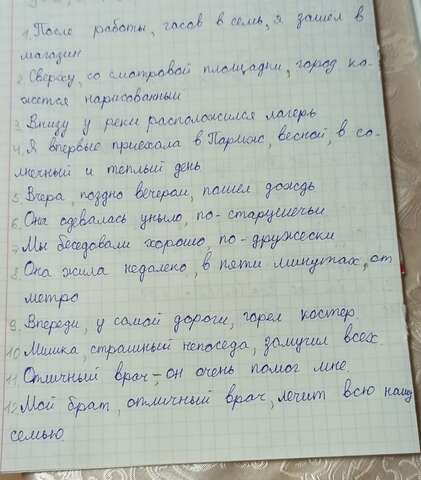 1. После работы, часов в семь, я зашел в
магазин
2. Сверху, со смотровой площадки, город ка-
жется нарисованный
3. Внизу у реки расположился лагерь
4. Я впервые приехала в Париж, весной, в со-
лнечный и теплый день
5. Вчера, поздно вечером, пошел дождь
6. Она одевалась уныло, по-старушечьи
7. Мы беседовали хорошо, по-дружески
8. Она жила недалеко, в пяти минутах, от
метро
9. Впереди, у самой дороги, горел костер
10. Мишка, страшный непоседа, замучил всех.
11. Отличный врач, - он очень помог мне.
12. Мой брат, отличный врач, лечит всю нашу
семью.